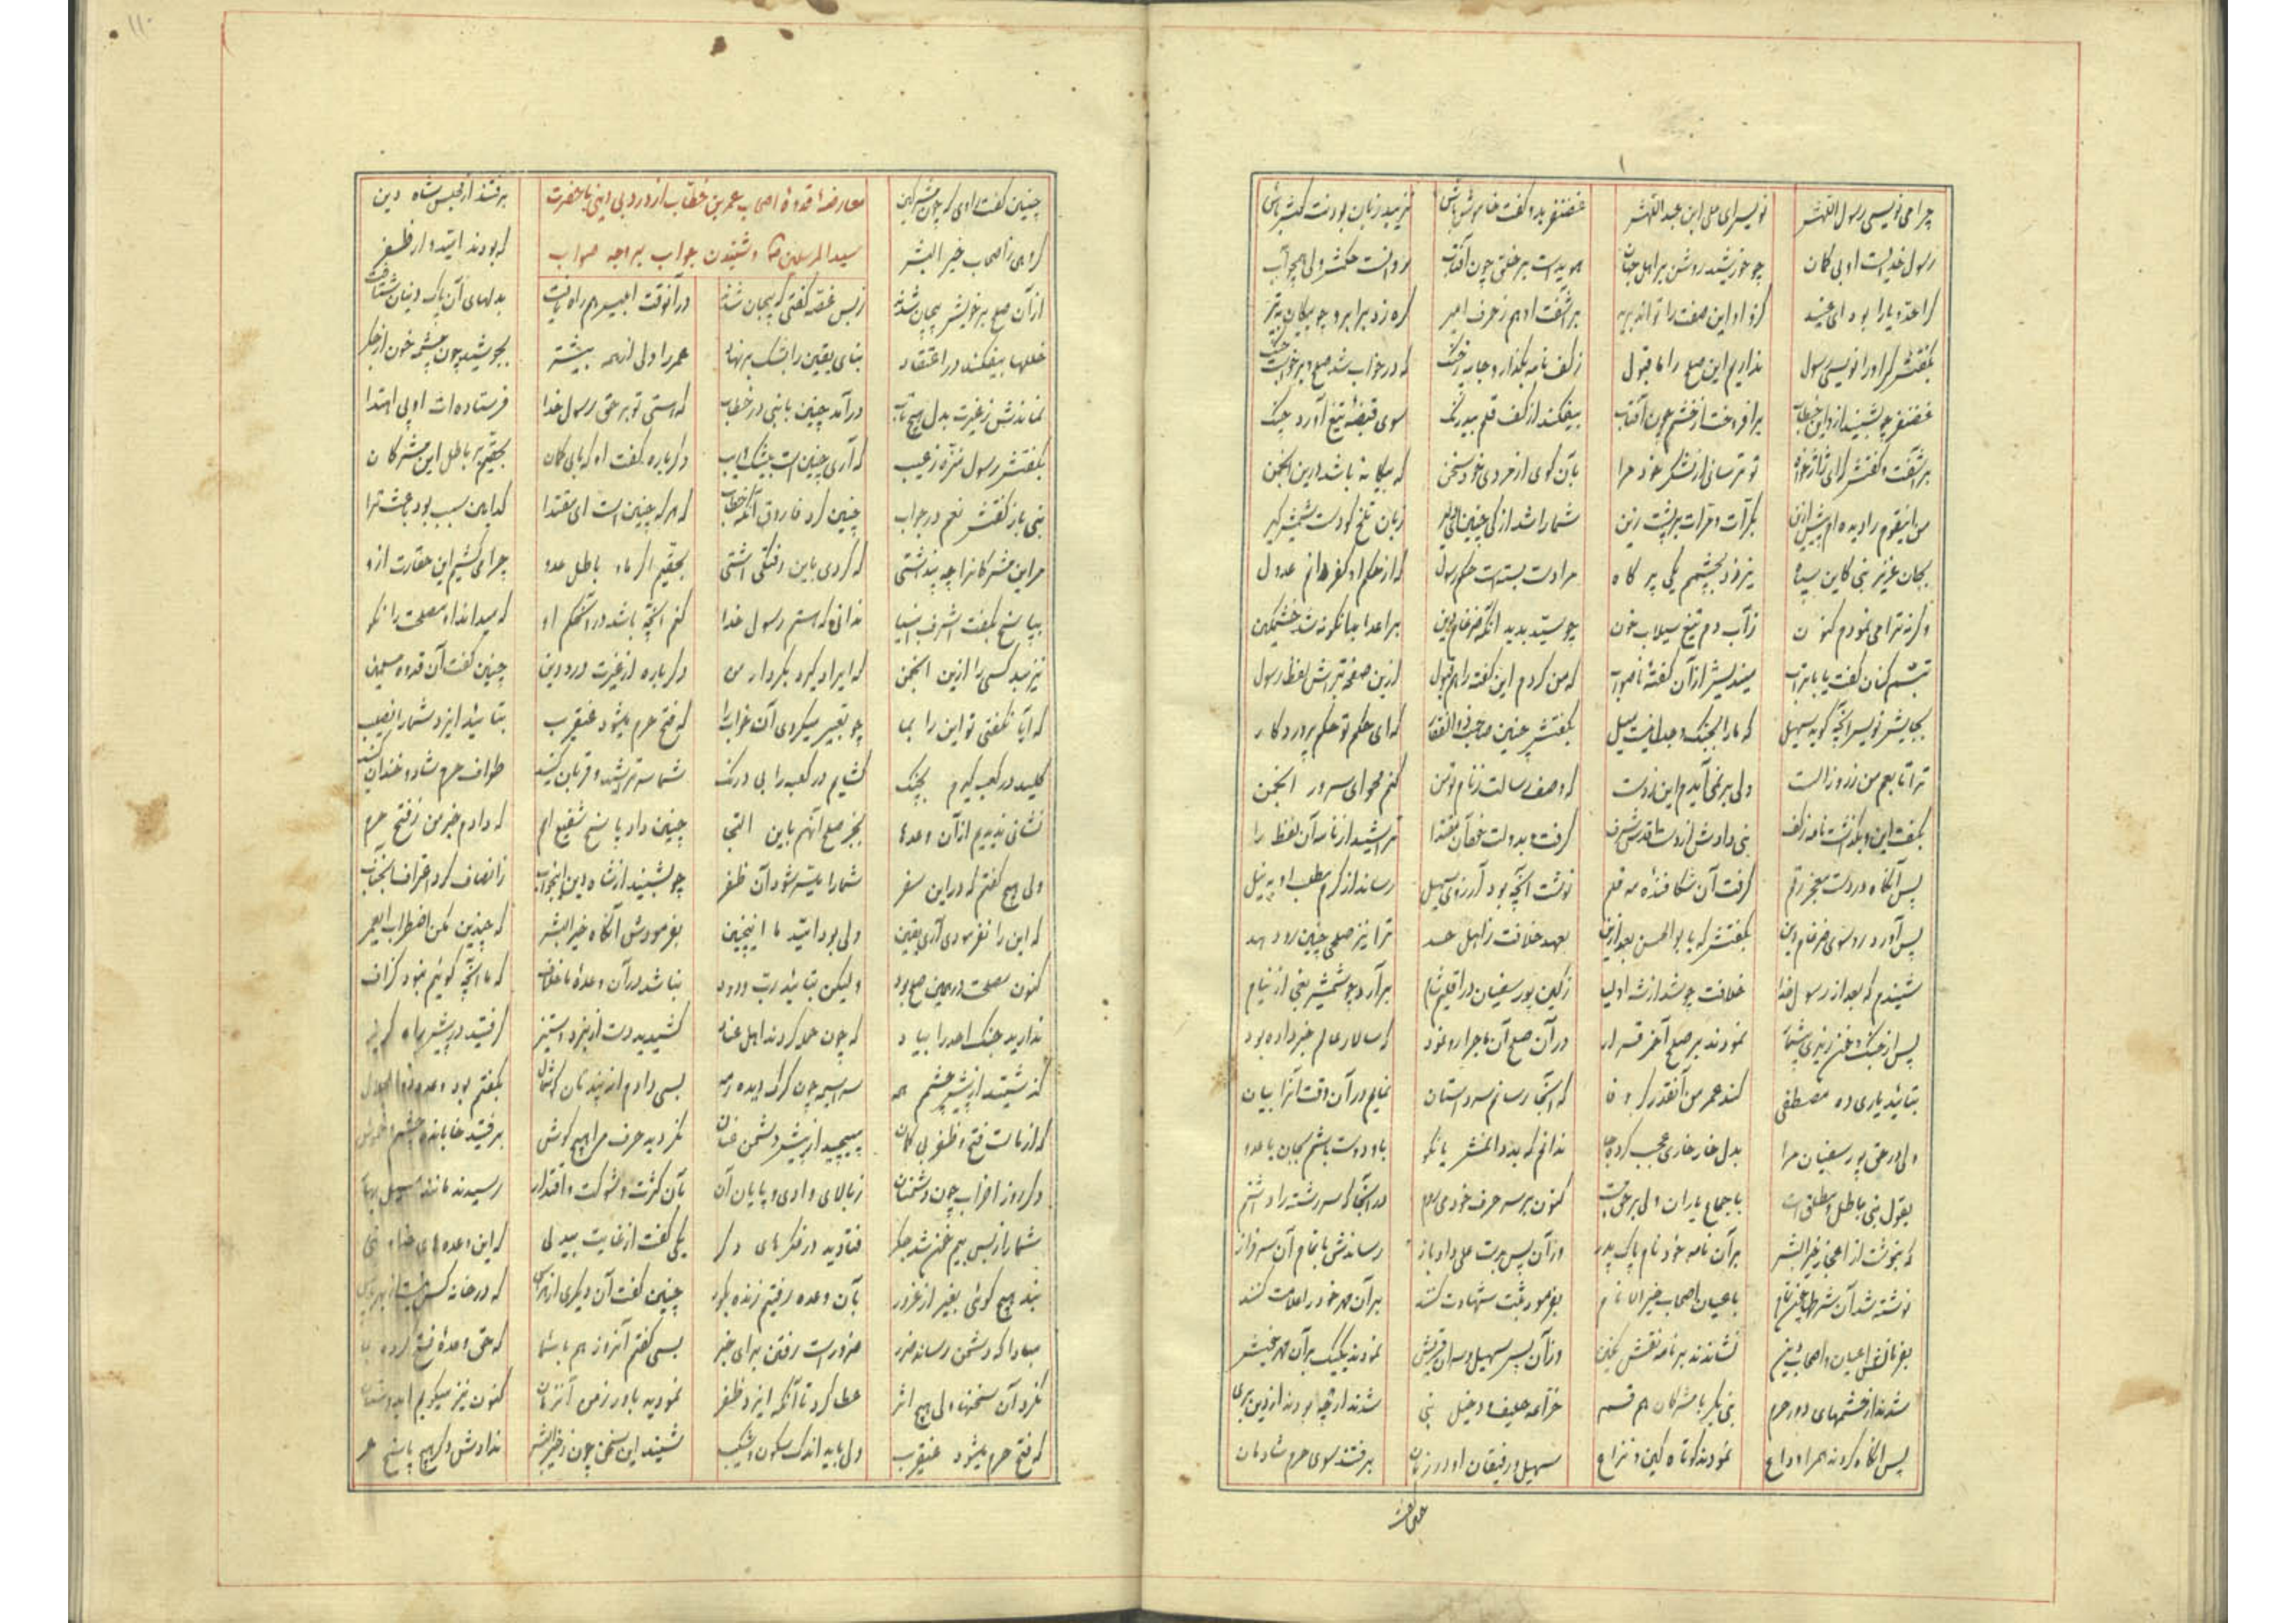 چرا می نویسی رسول اللهش نویس ای علی ابن عبد اللهش غضنفر بدو گفت خاموش باش نزیبد زبان بودنت کینه پاش
رسول خدایست او بی کمان چو خورشید روشن بر اهل جهان هویداست بر خلق چون آفتاب
کرا حد و یارا بود ای عنید کزو این صفت را تواند برید بر آشفت او هم ز حرف امیر کره زد برابرو چو پیکان تیر
بگفتش کر او را نویسی رسول نداریم این صلح را ما قبول ز کف نامه بگذار و جا به جنک که در خواب شد صلح و برخواست جنک
غضنفر چو بشنید ازو این خطاب برافروخت از خشم چون آفتاب بیفکند از کف قلم بیدرنک سوی قبضه تیغ آورد چنک
بر آشفت و گفتش که ای تو ترسانی از لشکر خود مرا بآن گوی از مردی خود سخن که بیگانه باشد درین انجمن
من اینقوم را دیده ام پیش ازین
بجان عزیز نبی کاین سپاه نیرزد بچشمم یکی پر کاه مرا دست بسته است حکم رسول که از حکم او کفر دانم عدول
وگرنه ترا می نمودم کنون ز آب دم تیغ سیلاب خون چو سید بدید آنکه ضرغام دین بر اعدا بدانگونه شد خشمگین
تبسم کنان گفت با بوتراب میندیش از آن گفته ناصواب که من کردم این گفته را هم قبول ازین صفحه بتراش لفظ رسول
بجایش نویس آنچه گوید سهیل که ما را بجنک و جدل نیست میل بگفتش چنین صاحب ذوالفقار که ای حکم تو حکم پروردگار
ترا تابعم من ز روز الست ولی بر نمی آیدم این ز دست که وصف رسالت ز نام تو من کنم محو ای سرور انجمن
بگفت این و بگذشت نامه ز کف نبی دادش از دست قدس شرف گرفت و بدولت خود آن مقتدا تراشید از نامه آن لفظ را
پس آنگاه در دست معجز رقم گرفت آن شکافنده مه قلم نوشت آنچه بود آرزوی سهیل رساند از کرم مطلب او به نیل
پس آورد رو سوی ضرغام دین بگفتش که یا بوالحسن بعد ازین بعهد خلافت ز اهل حسد ترا نیز صلحی چنین رو دهد
شنیدم که بعد از رسول خدا خلافت چو شد از شه اولیا ز کین پور سفیان در اقلیم شام برآورد چو شمشیر بغی از نیام
پس از جنک و خون ریزی نمودند بر صلح آخر قرار در آن صلح آن ماجرا رو نمود که سالار عالم خبر داده بود
بتائید یاری ده مصطفی کند عمر من آنقدر گر وفا که آنجا رسانم سر داستان نمایم در آن وقت آنرا بیان
ولی در حق پور سفیان مرا بدل خار خاری عجب کرده جا ندانم که بد دانمش یا نکو باو دوست باشم بجان یا عدو
بقول نبی باطل مطلق است باجماع یاران ولی بر حق است کنون بر سر حرف خود می روم
که بنوشت از اعجاز خیر البشر بر آن نامه خود نام پاک پدر وز آن پس بدست علی داد باز رساندش باتمام آن سرفراز
نوشته شد آن شرطها چون تمام باعیان اصحاب خیر الانام بفرمود ثبت شهادت کنند بر آن مهر خود را علامت کنند
بفرمانش اعیان و اصحاب دین نشاندند بر نامه نقش نگین وز آن پس سهیل و سران قریش نمودند یکیک بر آن مهر خویش
بنی بکر با مشرکان هم قسم خزاعه حلیف و دخیل نبی
پس آنگاه کردند همرا وداع نمودند کوتاه کین و نزاع سهیل و رفیقان او در زمان برفتند سوی حرم شادمان
چنین گفت راوی که چون مشرکین برفتند از مجلس شاه دین
معارضه قدوه اصحاب عمر بن خطاب از درد بی دینی با حضرت
سید المرسلین و شنیدن جواب بر وجه صواب
گروهی ز اصحاب خیر البشر که بودند امیدوار ظفر
از آن صلح بر خویش پیچان شدند ز بس غصه گفتی که بیجان شدند در آنوقت ابلیس هم راه یافت بدلهای آن پاک دینان شتافت
خللها بیفکند در اعتقاد بنای یقین را بشک بر نهاد عمر را ولی از همه بیشتر بجوشید چون چشمه خون از جگر
نماندش ز غیرت بدل هیچ تاب درآمد چنین با نبی در خطاب که هستی تو بر حق رسول خدا فرستاده ات او پی اهتدا
بگفتش رسول منزه ز عیب که آری چنین است بیشک و ریب دگر باره گفت او که ما بی کمان بحقیم بر باطل این مشرکان
نبی باز گفتش نعم در جواب چنین کرد فاروق آنگه خطاب که هرگه چنین است ای مقتدا کدامین سبب بود باعث ترا
مر این مشرکانرا چه پنداشتی که کردی باین رفتگی آشتی بحقیم اگر ما و باطل عدو چرا می کشیم این حقارت ازو
بپاسخ بگفت اشرف انبیا ندانی که هستم رسول خدا کنم آنچه باشد در آن حکم او که میداند او مصلحت را نکو
نزیبد کسی را ازین انجمن که ایراد گیرد بکردار من دگر باره از غیرت درد دین چنین گفت آن قدوه مسلمین
که آیا نگفتی تو این را بما چو تعبیر میکردی آن خواب را که فتح حرم میشود عنقریب بتائید ایزد شما را نصیب
کلید در کعبه گیرم بچنک گشایم در کعبه را بی درنک شما سر تراشید و قربان کنید طواف حرم شاد و خندان کنید
نشانی ندیدیم از آن وعدها بجز صلح آنهم باین التجا چنین داد پاسخ شفیع امم که دادم خبر من ز فتح حرم
ولی هیچ گفتم که در این سفر شما را میسر شود آن ظفر چو بشنید از شاه دین این جواب ز انصاف کرد اعتراف آنجناب
که این را نفرمودی آری یقین ولی بود امید ما اینچنین بفرمودش آنگاه خیر البشر که چندین مکن اضطراب ای عمر
کنون مصلحت در همین صلح بود ولیکن بتائید رب ودود نباشد در آن وعده ما خلاف که ما آنچه گوئیم نبود گزاف
ندارید جنک احد را بیاد که چون حمله کردند اهل عناد کشیدید دست از نبرد و ستیز گرفتید در پیش راه گریز
گذشتید از پیش چشمم همه سراسیمه چون گرگ دیده رمه بسی دادم از پند تان گوشمال بگفتم بود وعده ذوالجلال
که از ماست فتح و ظفر بی کمان مپیچید از پیش دشمن عنان نگردید حرف مرا هیچ گوش برفتید
دگر روز احزاب چون دشمنان ز بالای وادی و پایان آن بآن کثرت و شوکت و اقتدار رسیدند مانند
شما را ز بس بیم خون شد جگر فتادید در فکرهای دگر یکی گفت از غایت بیدلی که این وعده های
نبد هیچ گوئی بغیر از غرور بآن وعده رفتیم زنده بگور چنین گفت آن دیگری از هراس که در خانه
مبادا که دشمن رساند ضرر ضرور است رفتن برای خبر بسی گفتم آنروز هم با شما که حق وعده فتح کرده بما
نکرد آن سخنها ولی هیچ اثر عطا کرد تا آنکه ایزد ظفر نمودید باور ز من آنزمان کنون نیز میگویم
که فتح حرم میشود عنقریب ولی باید اندک سکون و شکیب شنید این سخن چون ز خیر البشر ندادش دگر هیچ پاسخ عمر